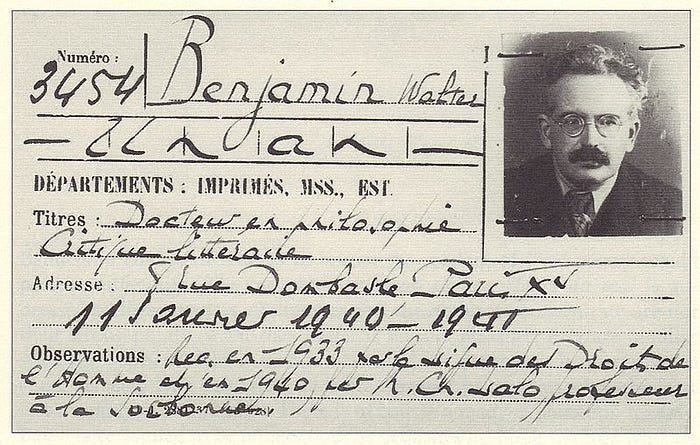 Numéro :
3454 Benjamin Walter
— Un an —
DÉPARTEMENTS : IMPRIMÉS, MSS., EST.
Titres : Docteur en philosophie
Critique litteraire
Adresse : rue Dombasle Paris XV
11 Janvier 1940 - 1941
Observations : Rec. en 1933 par la Ligue des Droits de
l'Homme et en 1940 par professeur
à la Sorbonne